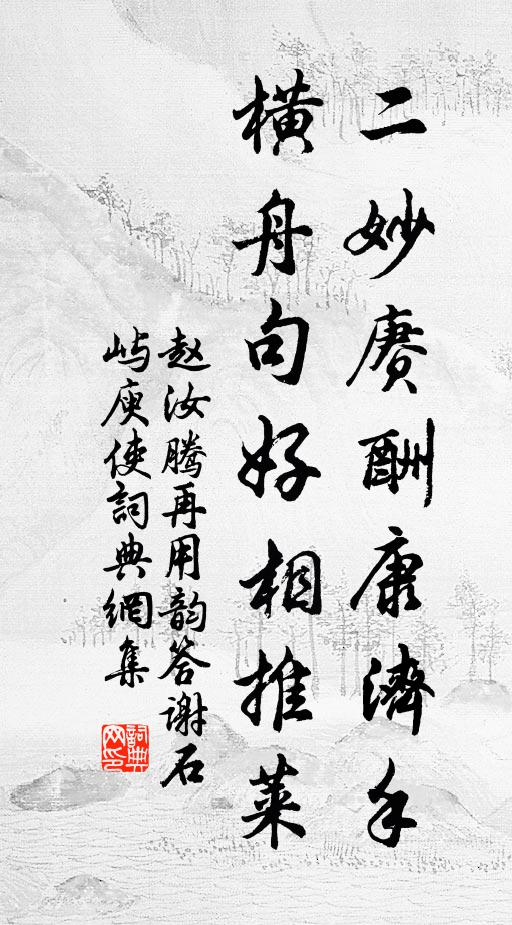 二妙赓酬康济手
横舟句好相推莱
赵汝腾再用韵答谢石
屿庾使詞典網集
詞典网印